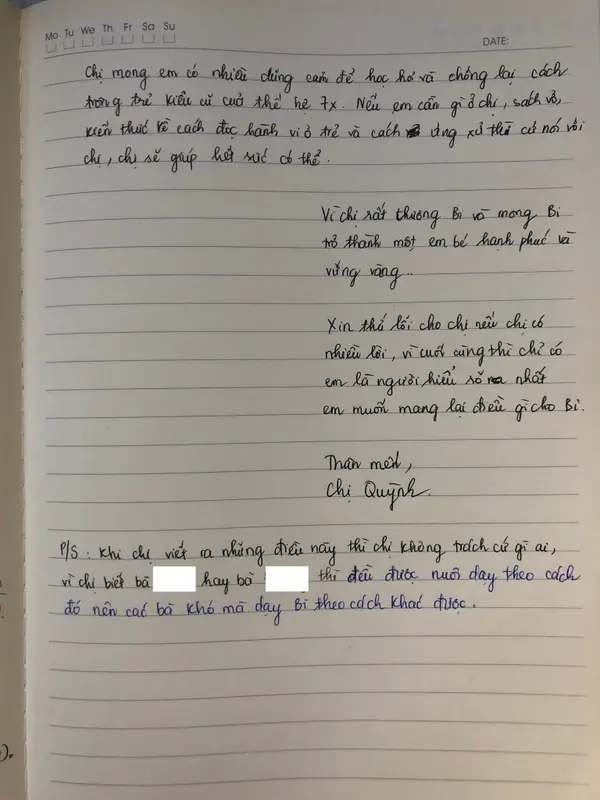 Mo Tu We Th Fr Sa Su
DATE:
Chị mong em có nhiều dũng cảm để học hỏi và chống lại cách
trông trẻ kiểu cũ của thế hệ 7x. Nếu em cần gì ở chị, sách vở,
kiến thức về cách đọc hành vi ở trẻ và cách ứng xử thì cứ nói với
chị, chị sẽ giúp hết sức có thể.
Vì chị rất thương Bi và mong Bi
trở thành một em bé hạnh phúc và
vững vàng..
Xin thứ lỗi cho chị nếu chị có
nhiều lời, vì cuối cùng thì chỉ có
em là người hiểu rõ nhất
em muốn mang lại điều gì cho Bi.
Thân mến,
Chị Quỳnh.
P/S: Khi chị viết ra những điều này thì chị không trách cứ gì ai,
vì chị biết bà hay bà thì đều được nuôi dạy theo cách
đó nên các bà khó mà dạy Bi theo cách khác được.